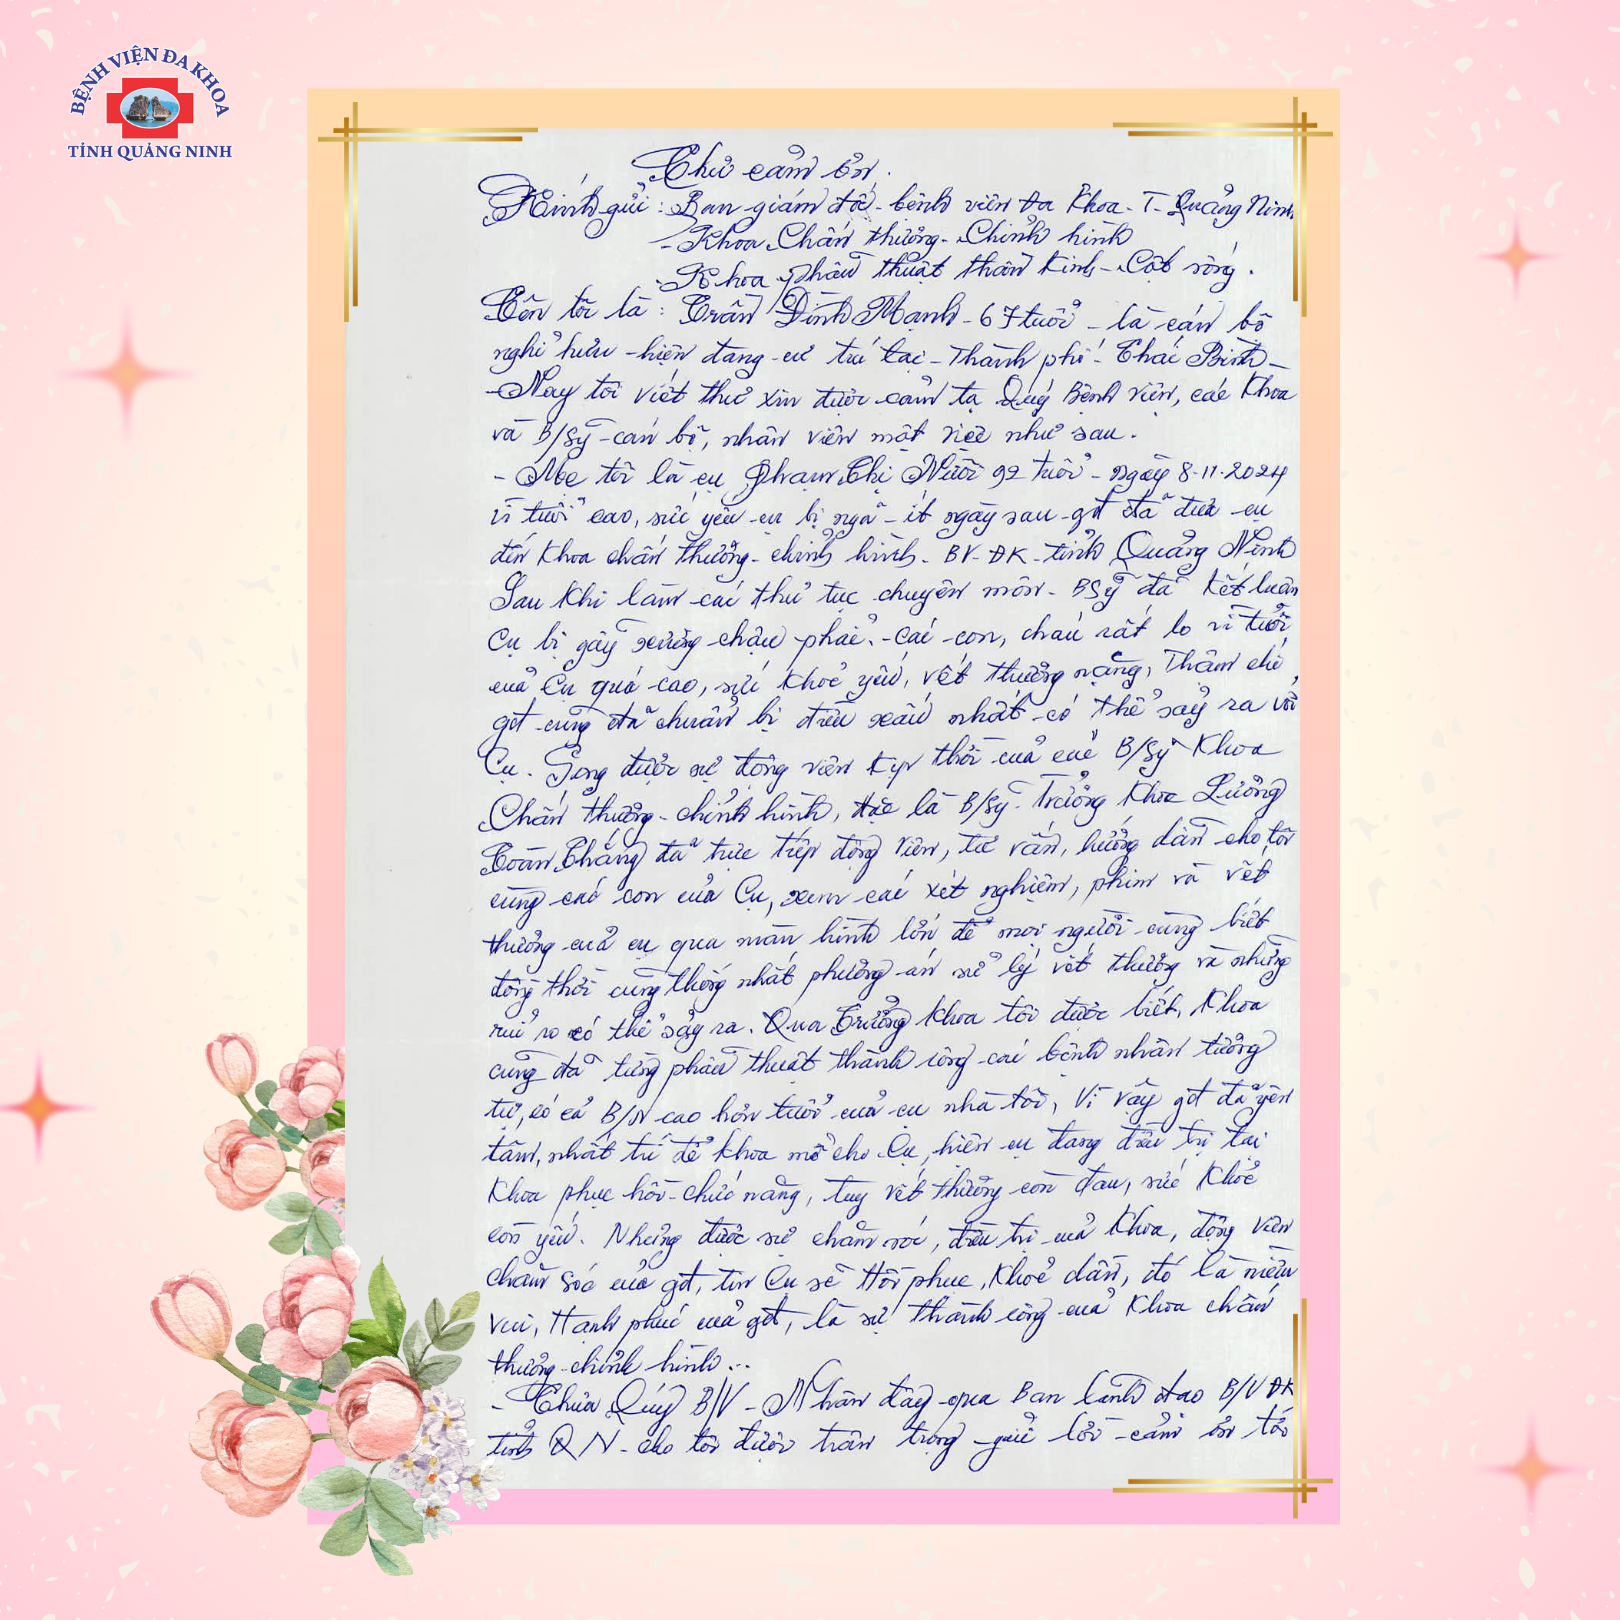 BỆNH VIỆN ĐA KHOA
TỈNH QUẢNG NINH
Thư cảm ơn.
Kính gửi: Ban giám đốc - bệnh viện Đa Khoa - T - Quảng Ninh
- Khoa Chấn thương - Chỉnh hình
- Khoa phẫu thuật thần kinh - Cột sống.
Tên tôi là: Trần Đình Mạnh - 67 tuổi - là cán bộ
nghỉ hưu - hiện đang cư trú tại - Thành phố - Thái Bình -
- Nay tôi viết thư xin được cảm tạ Quý Bệnh viện, các Khoa
và B/sỹ - cán bộ, nhân viên một việc như sau.
- Mẹ tôi là cụ Phạm Thị Nười 92 tuổi - ngày 8-11-2024
vì tuổi cao, sức yếu cụ bị ngã - ít ngày sau - gđ đã đưa cụ
đến Khoa chấn thương - chỉnh hình - BV - ĐK - tỉnh Quảng Ninh
Sau khi làm các thủ tục chuyên môn - BSỹ đã kết luận
Cụ bị gãy xương chậu phải. - Các con, cháu rất lo vì tuổi
của Cụ quá cao, sức khỏe yếu, vết thương nặng, Thậm chí,
gđ cũng đã chuẩn bị điều xấu nhất có thể sảy ra với
Cụ. Song được sự động viên kịp thời của các B/sỹ Khoa
Chấn thương - chỉnh hình, đặc là B/sỹ - Trưởng Khoa Lương
Toàn Thắng đã trực tiếp động viên, tư vấn, hướng dẫn cho tôi
cùng các con của Cụ, xem các xét nghiệm, phim và vết
thương của cụ qua màn hình lớn để mọi người cùng biết
đồng thời cùng thống nhất phương án sử lý vết thương và những
rủi ro có thể sảy ra. Qua Trưởng khoa tôi được biết, Khoa
cũng đã từng phẫu thuật thành công các bệnh nhân tương
tự, có cả B/N cao hơn tuổi của cụ nhà tôi, Vì vậy gđ đã yên
tâm, nhất trí để khoa mổ cho Cụ, hiện cụ đang điều trị tại
Khoa phục hồi - chức năng, tuy vết thương còn đau, sức khỏe
còn yếu. Nhưng được sự chăm sóc, điều trị của Khoa, động viên
chăm sóc của gđ, tin Cụ sẽ Hồi phục, Khoẻ dần, đó là niềm
vui, Hạnh phúc của gđ, là sự thành công của Khoa chấn
thương - chỉnh hình...
- Thưa Quý B/V - Nhân đây qua Ban lãnh đạo B/V ĐK
tỉnh QN - cho tôi được trân trọng gửi lời cảm ơn tới